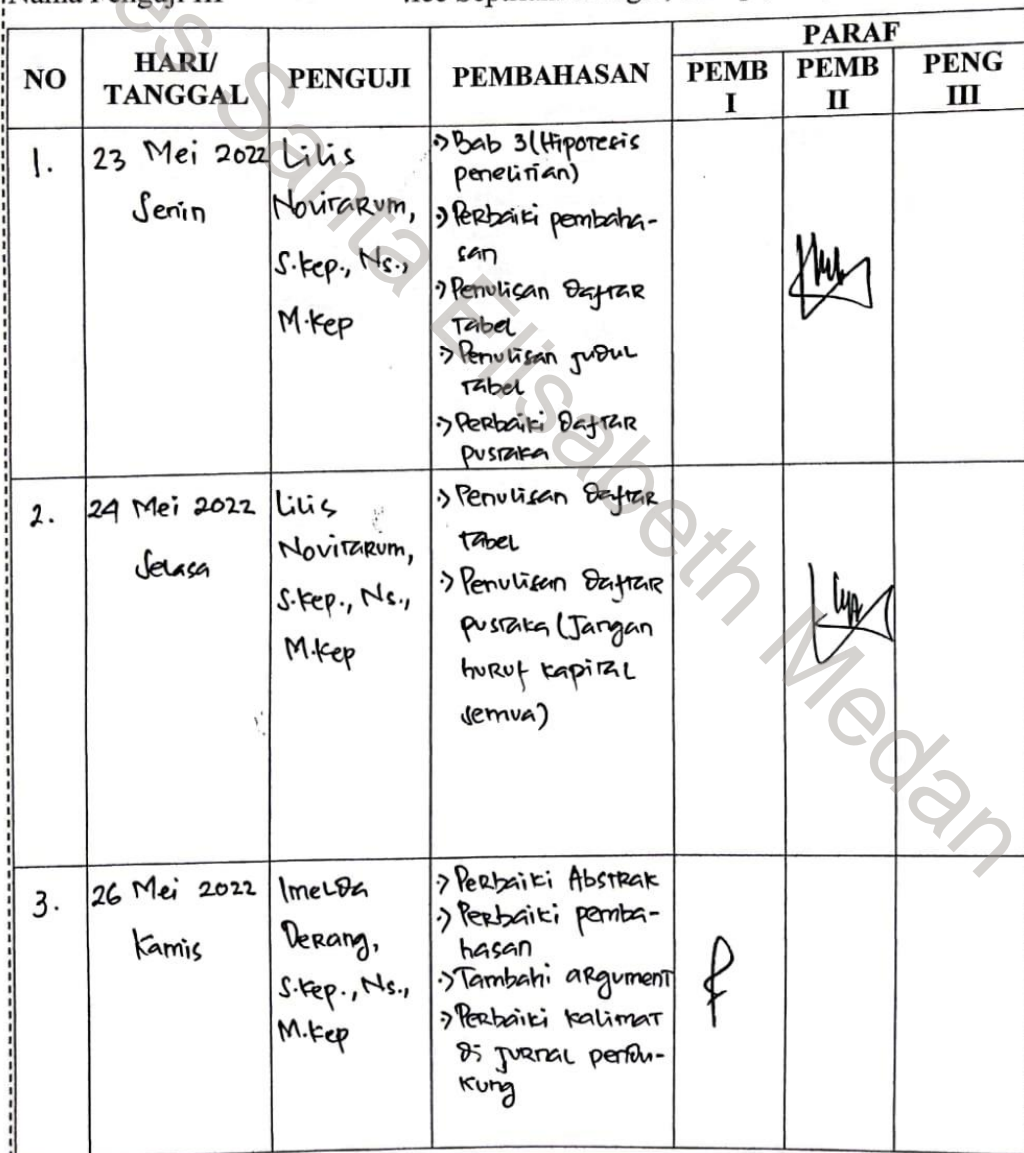 Santa Elisabeth Medan
PARAF
NO HARI/ TANGGAL PENGUJI PEMBAHASAN PEMB I PEMB II PENG III
1. 23 Mei 2022 Senin
Lilis
Novitarum,
S.Kep., Ns.,
M.Kep
Bab 3 (Hipotesis
penelitian)
Perbaiki pembaha-
san
Penulisan Daftar
Tabel
Penulisan judul
Tabel
Perbaiki Daftar
pustaka
2. 24 Mei 2022 Selasa
Lilis
Novitarum,
S.Kep., Ns.,
M.Kep
Penulisan Daftar
tabel
Penulisan Daftar
pustaka (Jangan
huruf kapital
semua)
3. 26 Mei 2022 Kamis
Imelda
Derang,
S.Kep., Ns.,
M.Kep
Perbaiki Abstrak
Perbaiki pemba-
hasan
Tambahi argument
Perbaiki kalimat
di jurnal pendu-
kung